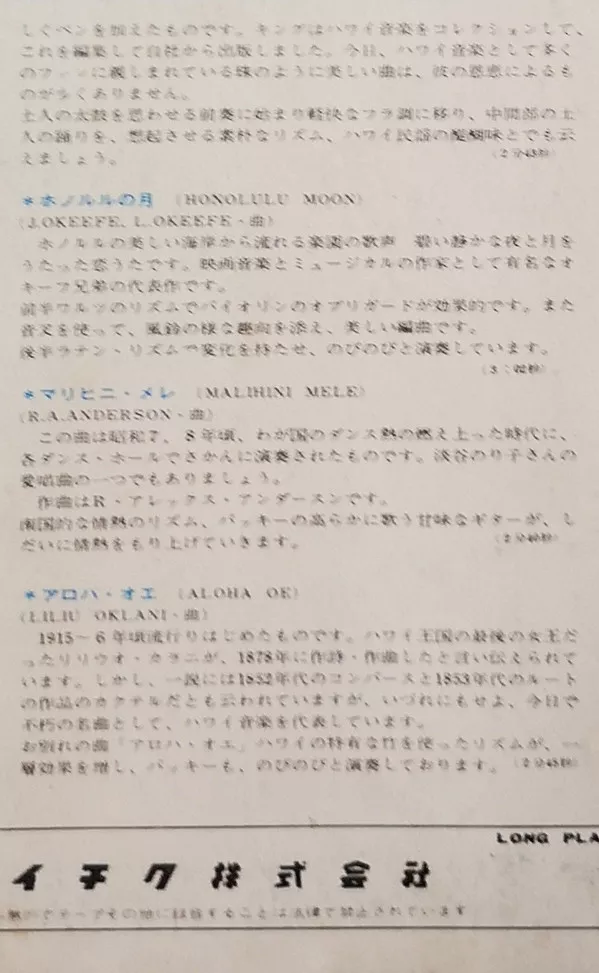 しくペンを加えたものです。キングはハワイ音楽をコレクションして、
これを編集して自社から出版しました。今日、ハワイ音楽として多く
のファンに親しまれている珠のように美しい曲は、彼の恩恵によるも
のが少くありません。
土人の太鼓を思わせる前奏に始まり軽快なフラ調に移り、中間部の土
人の踊りを、想起させる素朴なリズム、ハワイ民謡の醍醐味とでも云
えましょう。
*ホノルルの月 (HONOLULU MOON)
(J.OKEEFE, L.OKEEFE・曲)
ホノルルの美しい海岸から流れる楽園の歌声 碧い静かな夜と月を
うたった恋うたです。映画音楽とミュージカルの作家として有名なオ
キーフ兄弟の代表作です。
前半ワルツのリズムでバイオリンのオブリガードが効果的です。また
音叉を使って、風鈴の様な趣向を添え、美しい編曲です。
後半ラテン・リズムで変化を持たせ、のびのびと演奏しています。
*マリヒニ・メレ (MALIHINI MELE)
(R.A.ANDERSON・曲)
この曲は昭和7、8年頃、わが国のダンス熱の燃え上った時代に、
各ダンス・ホールでさかんに演奏されたものです。淡谷のり子さんの
愛唱曲の一つでもありましょう。
作曲はR・アレックス・アンダースンです。
南国的な情熱のリズム、バッキーの高らかに歌う甘味なギターが、し
だいに情熱をもり上げていきます。
*アロハ・オエ (ALOHA OE)
(LILIU OKLANI・曲)
1915〜6年頃流行りはじめたものです。ハワイ王国の最後の女王だ
ったリリウオ・カラニが、1878年に作詩・作曲したと言い伝えられて
います。しかし、一説には1852年代のコンバースと1853年代のルート
の作品のカクテルだとも云われていますが、いづれにもせよ、今日で
不朽の名曲として、ハワイ音楽を代表しています。
お別れの曲「アロハ・オエ」ハワイの特有な竹を使ったリズムが、一
層効果を増し、バッキーも、のびのびと演奏しております。(2分45秒)
LONG PLA
イチク株式会社
テープその他に録音することは法律で禁止されています